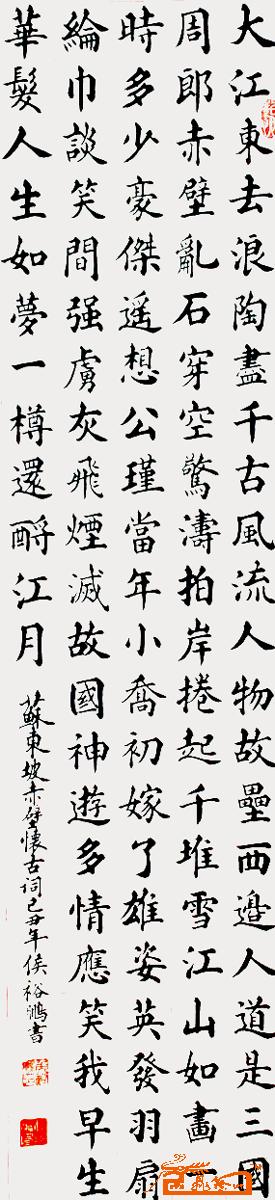 大江東去浪陶盡千古風流人物故壘西邊人道是三國
周郎赤壁亂石穿空驚濤拍岸捲起千堆雪江山如畫一
時多少豪傑遥想公瑾當年小喬初嫁了雄姿英發羽扇
綸巾談笑間强虜灰飛煙滅故國神遊多情應笑我早生
華髮人生如夢一樽還酹江月
蘇東坡赤壁懷古詞己丑年侯裕鴻書